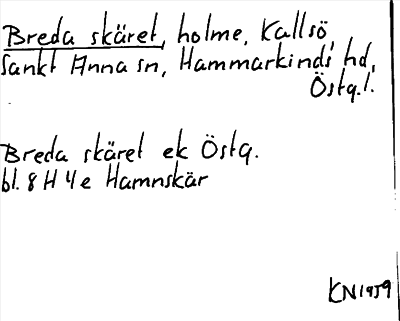 Breda skäret, holme, Kallsö,
Sankt Anna sn, Hammarkinds hd,
Östg.l.
Breda skäret ek Östg.
bl. 8 H 4 e Hamnskär
KN 1959